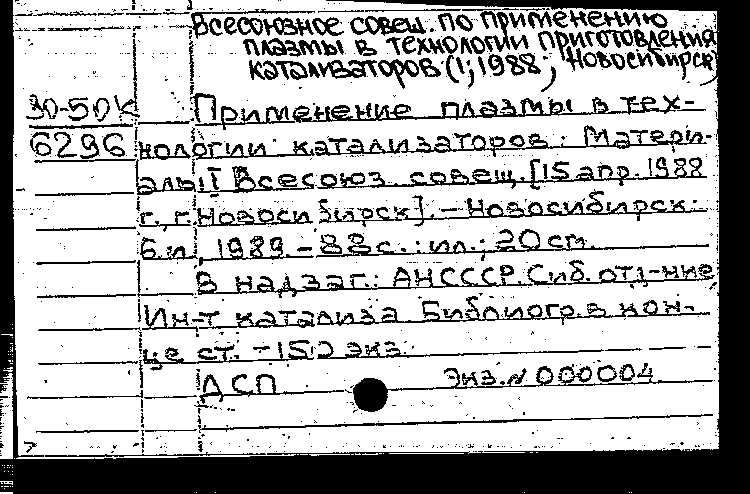 Всесоюзное совещ. по применению
плазмы в технологии приготовления
катализаторов (1; 1988; Новосибирск)
30-50К Применение плазмы в тех-
6296 нологии катализаторов: Матери-
алы I Всесоюз. совещ. [15 апр. 1988
г., г. Новосибирск]. – Новосибирск:
Б.и., 1989. – 88 с.: ил.; 20 см.
В надзаг.: АН СССР. Сиб. отд-ние
Ин-т катализа. Библиогр. в кон-
це ст. – 150 экз.
ДСП Экз. N 000004